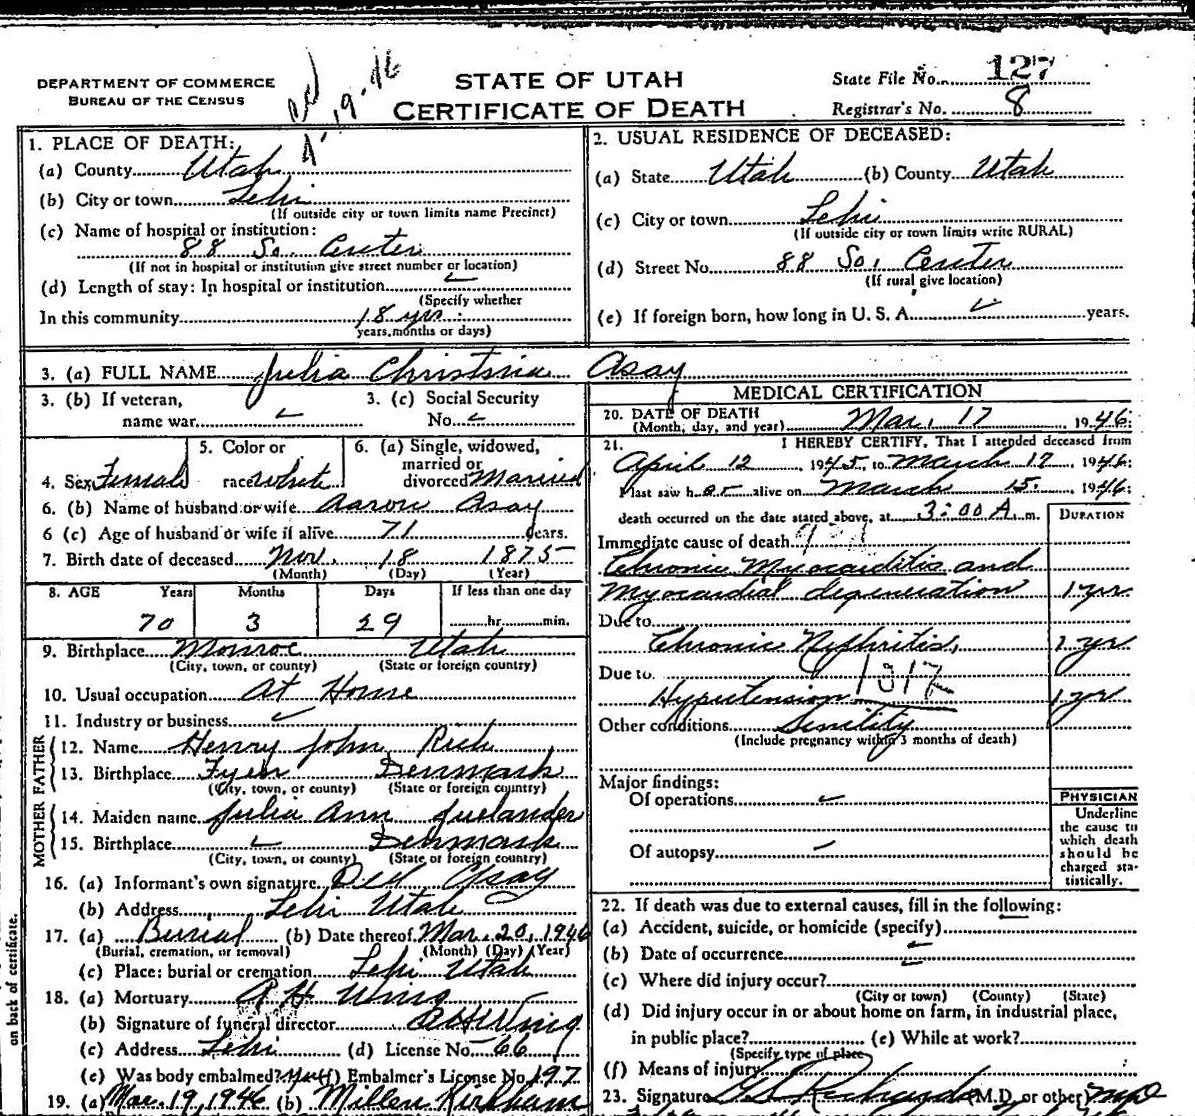 DEPARTMENT OF COMMERCE
BUREAU OF THE CENSUS
STATE OF UTAH
CERTIFICATE OF DEATH
State File No. 127
Registrar's No. 8
1. PLACE OF DEATH:
(a) County Utah
(b) City or town Lehi
(If outside city or town limits name Precinct)
(c) Name of hospital or institution:
88 So. Center
(If not in hospital or institution give street number or location)
(d) Length of stay: In hospital or institution
(Specify whether
In this community 18 yrs.
years, months or days)
2. USUAL RESIDENCE OF DECEASED:
(a) State Utah (b) County Utah
(c) City or town Lehi
(If outside city or town limits write RURAL)
(d) Street No. 88 So. Center
(If rural give location)
(e) If foreign born, how long in U. S. A. years.
3. (a) FULL NAME Julia Christina Asay
3. (b) If veteran, name war
3. (c) Social Security No.
4. Sex Female
5. Color or race white
6. (a) Single, widowed, married or divorced Married
6. (b) Name of husband or wife Aaron Asay
6 (c) Age of husband or wife if alive 71 years.
7. Birth date of deceased Nov. 18 1875
(Month) (Day) (Year)
8. AGE Years Months Days If less than one day
70 3 29 hr. min.
9. Birthplace Monroe Utah
(City, town, or county) (State or foreign country)
10. Usual occupation At Home
11. Industry or business
FATHER
12. Name Henry John Rich
13. Birthplace Fyen Denmark
(City, town, or county) (State or foreign country)
MOTHER
14. Maiden name Julia Ann
15. Birthplace Denmark
(City, town, or county) (State or foreign country)
16. (a) Informant's own signature Asay
(b) Address Lehi Utah
17. (a) Burial (b) Date thereof Mar. 20, 1946
(Burial, cremation, or removal) (Month) (Day) (Year)
(c) Place: burial or cremation Lehi Utah
18. (a) Mortuary Wing
(b) Signature of funeral director Wing
(c) Address Lehi (d) License No. 66
(e) Was body embalmed? (f) Embalmer's License No. 197
19. (a) Mar. 19, 1946 (b) Kirkham
on back of certificate.
MEDICAL CERTIFICATION
20. DATE OF DEATH
(Month, day, and year) Mar. 17 1946
21. I HEREBY CERTIFY, That I attended deceased from
April 12, 1945, to March 17 1946
I last saw her alive on March 15. 1946
death occurred on the date stated above, at 3:00 A. m.
DURATION
Immediate cause of death
Chronic Myocarditis and
Myocardial degeneration 1 yr.
Due to
Chronic Nephritis, 1 yr
Due to
Hypertension 1 yr
Other conditions Senility
(Include pregnancy within 3 months of death)
Major findings:
Of operations
Of autopsy
PHYSICIAN
Underline
the cause to
which death
should be
charged sta-
tistically.
22. If death was due to external causes, fill in the following:
(a) Accident, suicide, or homicide (specify)
(b) Date of occurrence
(c) Where did injury occur?
(City or town) (County) (State)
(d) Did injury occur in or about home on farm, in industrial place,
in public place? (e) While at work?
(Specify type of place)
(f) Means of injury
23. Signature (M.D. or other)